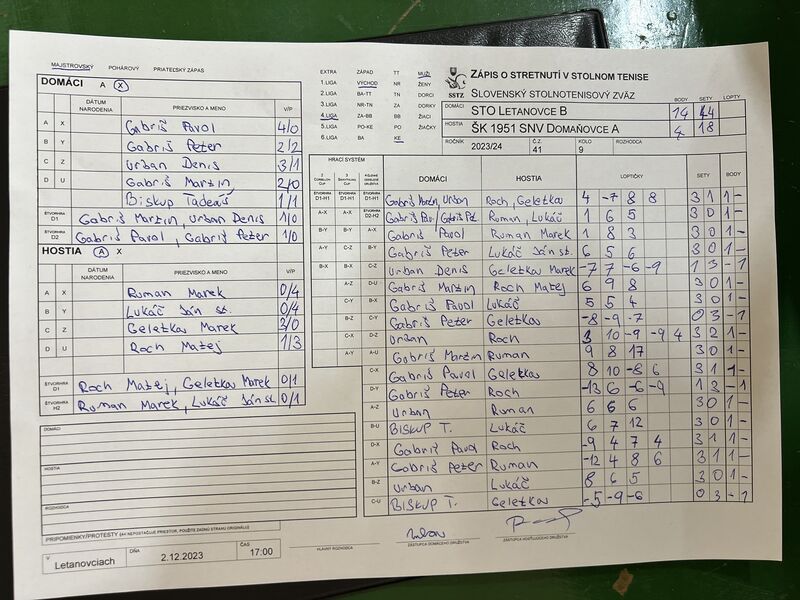 MAJSTROVSKÝ POHÁROVÝ PRIATEĽSKÝ ZÁPAS
DOMÁCI A X
DÁTUM NARODENIA PRIEZVISKO A MENO V/P
A X Gabriš Pavol 4/0
B Y Gabriš Peter 2/2
C Z Urban Denis 3/1
D U Gabriš Martin 2/0
Biskup Tadeáš 1/1
ŠTVORHRA D1 Gabriš Martin, Urban Denis 1/0
ŠTVORHRA D2 Gabriš Pavol, Gabriš Peter 1/0
HOSTIA A X
DÁTUM NARODENIA PRIEZVISKO A MENO V/P
A X Ruman Marek 0/4
B Y Lukáč Ján st. 0/4
C Z Geletka Marek 3/0
D U Roch Matej 1/3
ŠTVORHRA D1 Roch Matej, Geletka Marek 0/1
ŠTVORHRA H2 Ruman Marek, Lukáč Ján st. 0/1
DOMÁCI
HOSTIA
ROZHODCA
PRIPOMIENKY/PROTESTY (AK NEPOSTAČUJE PRIESTOR, POUŽITE ZADNÚ STRANU ORIGINÁLU)
V Letanovciach DŇA 2.12.2023 ČAS 17:00
EXTRA ZÁPAD TT MUŽI
1.LIGA VÝCHOD NR ŽENY
2.LIGA BA-TT TN DORCI
3.LIGA NR-TN ZA DORKY
4.LIGA ZA-BB BB ŽIACI
5.LIGA PO-KE PO ŽIAČKY
6.LIGA BA KE
SSTZ
ZÁPIS O STRETNUTÍ V STOLNOM TENISE
SLOVENSKÝ STOLNOTENISOVÝ ZVÄZ
BODY SETY LOPTY
DOMÁCI STO LETANOVCE B 14 44
HOSTIA ŠK 1951 SNV DOMAŇOVCE A 4 18
ROČNÍK 2023/24 Č.Z. 41 KOLO 9 ROZHODCA
HRACÍ SYSTÉM
DOMÁCI HOSTIA LOPTIČKY SETY BODY
D1-H1 D1-H1 D1-H1 Gabriš Martin, Urban Roch, Geletka 4 -7 8 8 3 1 1 -
A-X A-X D2-H2 Gabriš Pav., Gabriš Pet. Ruman, Lukáč 1 6 5 3 0 1 -
B-Y B-Y A-X Gabriš Pavol Ruman Marek 1 8 3 3 0 1 -
A-Y C-Z B-Y Gabriš Peter Lukáč Ján st. 6 5 6 3 0 1 -
B-X B-X C-Z Urban Denis Geletka Marek -7 7 -6 -9 1 3 - 1
A-Z D-U Gabriš Martin Roch Matej 6 9 8 3 0 1 -
C-Y B-X Gabriš Pavol Lukáč 5 5 4 3 0 1 -
B-Z C-Y Gabriš Peter Geletka -8 -9 -7 0 3 - 1
C-X D-Z Urban Roch 3 10 -9 -9 4 3 2 1 -
A-Y A-U Gabriš Martin Ruman 9 8 17 3 0 1 -
C-X Gabriš Pavol Geletka 8 10 -8 6 3 1 1 -
D-Y Gabriš Peter Roch -13 6 -6 -9 1 3 - 1
A-Z Urban Ruman 6 6 6 3 0 1 -
B-U Biskup T. Lukáč 6 7 12 3 0 1 -
D-X Gabriš Pavol Roch -9 4 7 4 3 1 1 -
A-Y Gabriš Peter Ruman -12 4 8 6 3 1 1 -
B-Z Urban Lukáč 8 6 5 3 0 1 -
C-U Biskup T. Geletka -5 -9 -6 0 3 - 1
HLAVNÝ ROZHODCA ZÁSTUPCA DOMÁCEHO DRUŽSTVA ZÁSTUPCA HOSŤUJÚCEHO DRUŽSTVA